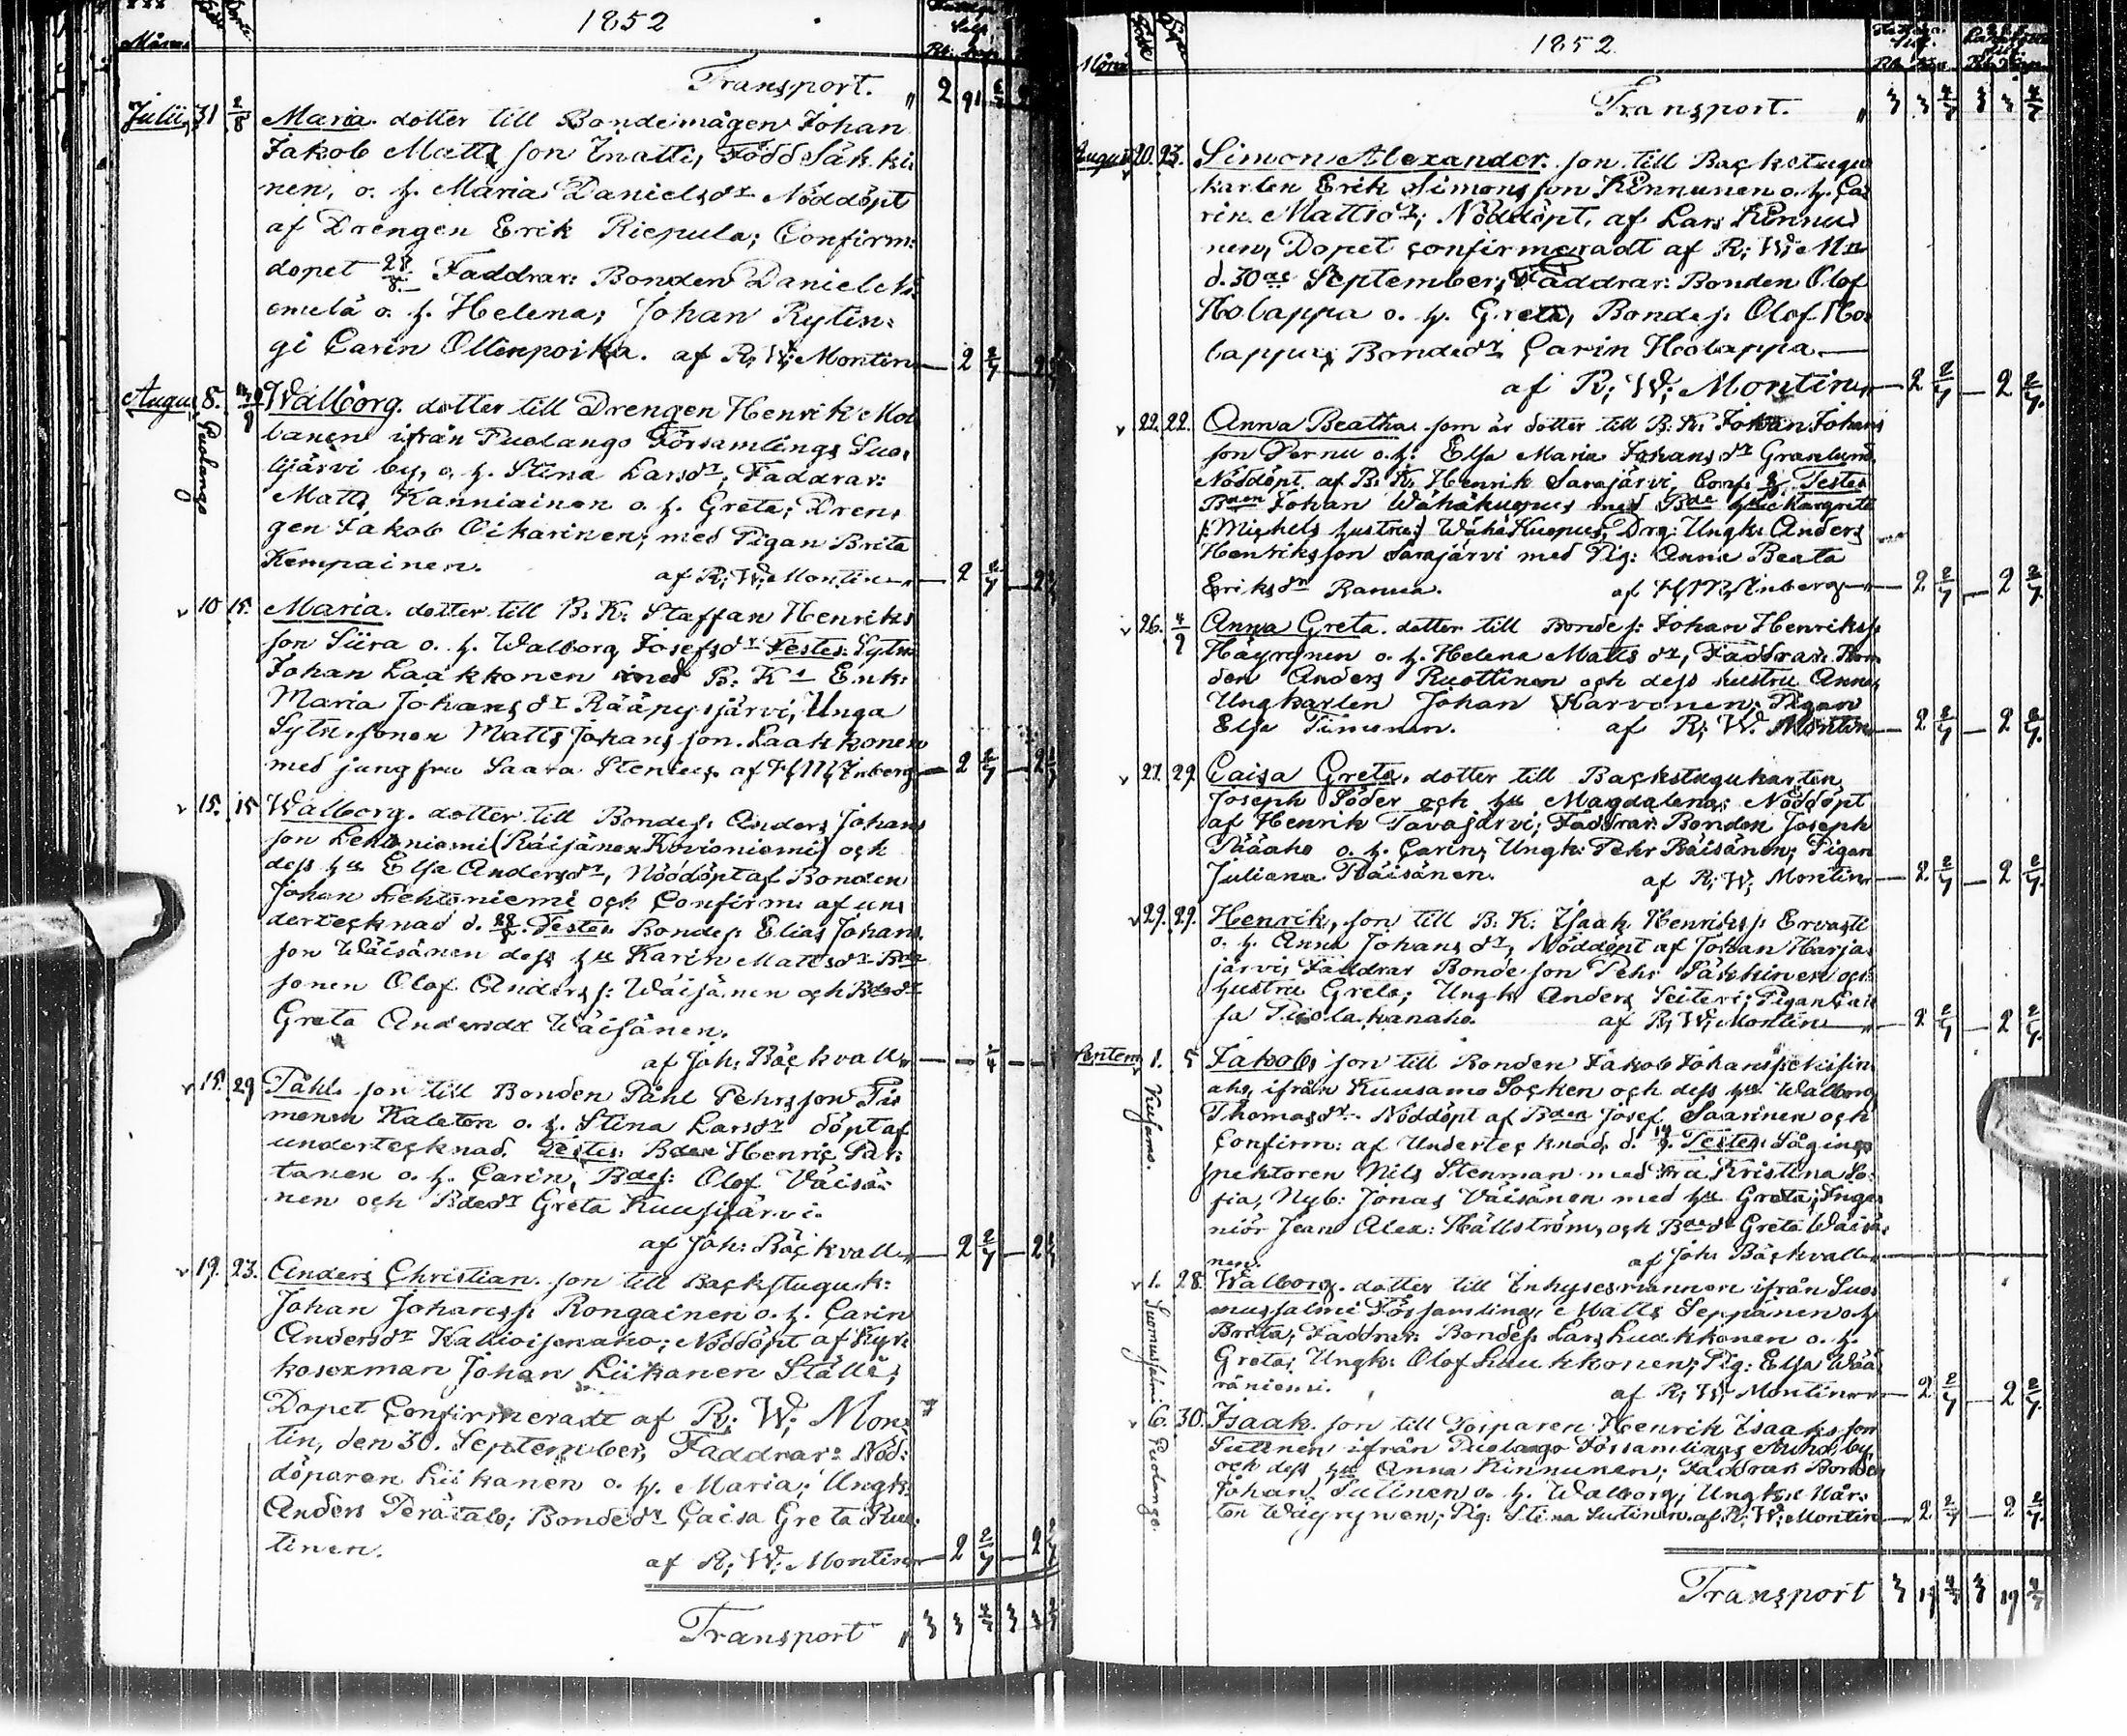 1852
Månad
Transport. " 2 91
Julii 31 2/8 Maria. dotter till Bondemågen Johan
Jakob Matts son Född Säkki
nen, o. h. Maria Danielsdr Nöddöpt
af Drengen Erik Riepula; Confirm:
dopet Faddrar: Bonden Daniel
emelä o. h. Helena; Johan Rytin:
gi Carin Ollenpoika. af R; W; Montin — 2 2/7
Augu 8. Walborg. dotter till Drengen Henrik Mo
lanen ifrån Puolango Församlings Suo,
lijärvi by, o. h. Stina Larsdr; Faddrar:
Puolango
Matts Kanniainen o. h. Greta; Dren,
gen Jakob Oikarinen; med Pigan Brita
Kempainen. af R; W; Montin — 2 2/7
10 15. Maria. dotter till B. K: Staffan Henriks
son Siira o. h. Walborg Josefsdr Testes: Sytn:
Johan Laakkonen med B. Ks Enk:
Maria Johansdr Rääpysjärvi, Unga
Sytn: sonen Matts Johansson Laakkonen
med jungfru Saara Stenius. af — 2 2/7
15. 15 Walborg. dotter till Bondes: Anders Johans
son Lehtoniemi (Räisänen Kovioniemi) och
dess hu Elsa Andersdr, Nöddöpt af Bonden
Johan Lehtoniemi och Confirm: af un,
dertecknad d. Testes Bondes Elias Johans
son Wäisänen dess hu Karin Mattsdr Bde
sonen Olof Anders s: Wäisänen och Bdedr
Greta Andersdr Wäisänen.
af Joh: Bäckvall
15. 29 Påhl. son till Bonden Påhl Pehrsson
menen Kaleton o. h. Stina Larsdr döpt af
undertecknad. Testes: Bden Henric Par:
tanen o. h. Carin, Bdes: Olof Väisä:
nen och Bdedr Greta Kuusijärvi.
af Joh: Bäckvall — 2 2/7
19. 23. Anders Christian. son till Backstuguk:
Johan Johanss: Rongainen o. h. Carin
Andersdr Kallioisenaho; Nöddöpt af Kyr:
kosexman Johan Liikanen Ställe;
Dopet Confirmeradt af R; W; Mon,
tin, den 30. September, Faddrar: Nöd:
döparen Liikanen o. h. Maria; Ungk:
Anders Perätalo; Bondedr Caisa Greta
tinen. af R; W; Montin — 2 2/7 — 2 2/7
Transport " 3 3 4/7 3 3
1852
Månad
Transport. " 3 3 4/7 3 3 4/7
August 20. 23. Simon Alexander. son till Backstugu
karlen Erik Simons son Kinnunen o. h. Ca
rin Mattsdr; Nöddöpt af Lars Kinnu
nen, Dopet confirmeradt af R; W; Mn
d. 30de September; Faddrar: Bonden Olof
Holappa o. h. Greta, Bondes: Olof Ho
lappa; Bondedr Carin Holappa —
af R; W; Montin — 2 2/7 — 2 2/7.
22. 22. Anna Beatha. som är dotter till B. K: Johan Johans
son Pernu o. h: Elsa Maria Johansdr Granlund.
Nöddöpt af B. K. Henrik Sarajärvi, Conf. Testes
Bden Johan Wähäkuopus med Bde
(: Michels hustru:) Wähä Kuopus, Drg: Ungk: Anders
Henriksson Sarajärvi med Pig: Anna Beata
Eriksdr Ranua. af — 2 2/7 — 2 2/7
26. 4/9 Anna Greta. dotter till Bondes: Johan Henrikss:
Häyrynen o. h. Helena Matts dr; Faddrar: Bon
den Anders Ruottinen och dess hustru Anna,
Ungkarlen Johan Karvonen; Pigan
Elsa Timonen. af R; W. Montin — 2 2/7 — 2 2/7.
27. 29. Caisa Greta. dotter till Backstugukarlen
Joseph Söder och hu Magdalena; Nöddöpt
af Henrik Tavajärvi; Faddrar: Bonden Joseph
Pääaho o. h. Carin; Ungk: Pehr Räisänen; Pigan
Juliana Räisänen. af R; W; Montin — 2 2/7 — 2 2/7.
29. 29. Henrik, son till B. K: Isaak Henrikss: Ervasti
o. h. Anna Johansdr, Nöddöpt af Johan Harja:
järvi, Faddrar Bonde son Pehr Säkkinen och
hustru Greta; Ungk. Anders Seiteri; Pigan Cai
sa Puolakanaho. af R; W; Montin — 2 2/7 — 2 2/7.
Septem 1. 5 Jakob, son till Bonden Jakob Johanss:
aho, ifrån Kuusamo Socken och dess hu Walborg
Kusamo.
Thomasdr. Nöddöpt af Bden Josef Saarinen och
Confirm: af Undertecknad, d. Testes: Sågins,
pektoren Nils Stenman med Fru Kristina So:
fia, Nyb: Jonas Väisänen med hu Greta; Inge
niör Jean Alex: Hällström, och Bdedr Greta Wäisä:
nen. af Joh: Bäckvall
1. 28. Walborg. dotter till Inhysesmannen ifrån Suo
mussalmi Församling, Matts Seppänen o. h
Suomussalmi
Brita; Faddrar: Bondes: Lars Luukkonen o. h.
Greta; Ungk: Olof Luukkonen; Pig: Elsa Wää
räniemi. af R; W; Montin — 2 2/7 — 2 2/7.
6. 30. Isaak. son till Torparen Henrik Isaaks son
Sutinen ifrån Puolango Församlings by
Puolango.
och dess hu Anna Kinnunen; Faddrar Bonden
Johan Sutinen o. h. Walborg, Ungk: Mår:
ten Wäyrynen; Pig: Stina Sutinen. af R; W; Montin — 2 2/7 — 2 2/7
Transport 3 19 4/7 3 19 4/7